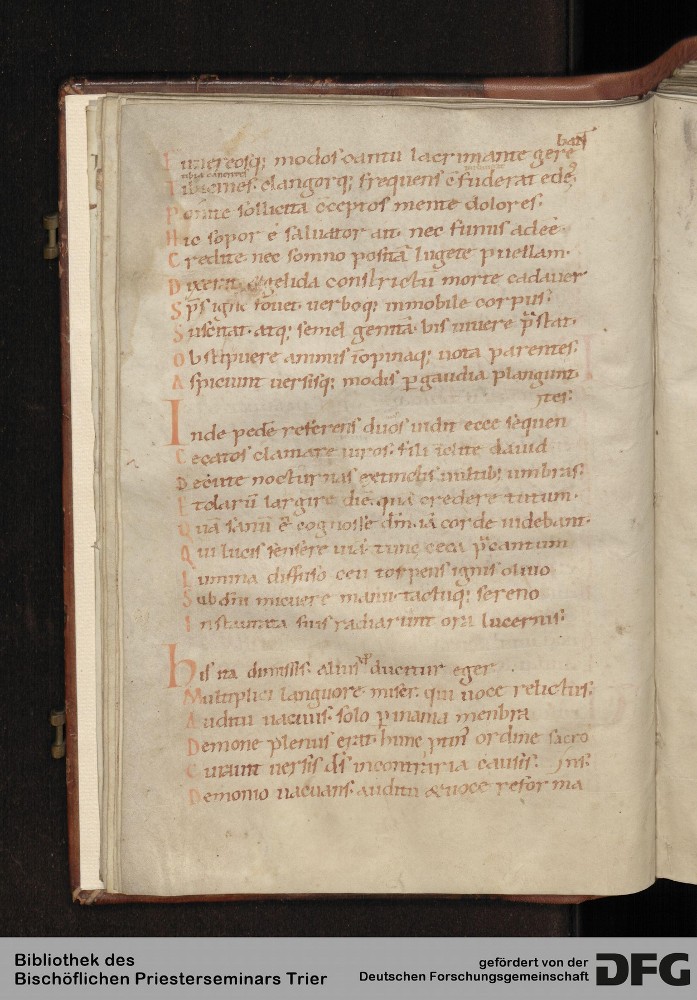 bant
Funereosq; modos cantu lacrimante gere
tibia canentes
Tibicines. clangorq; frequens ē fuderat ędę.
Ponite sollicita ceptos mente dolores:
Hic sopor ē saluator ait. nec funus adeē.
Credite nec somno positā lugete puellam.
Dixerat & gelida constrictū morte cadauer
Sps igni fouet. uerboq; inmobile corpus.
Suscitat. atq; semel genitā bis uiuere p̄stat.
Obstipuere animis īopinaq; uota parentes.
Aspiciunt uersisq; modis p gaudia plangunt.
tes:
Inde pedē referens duos uidit ecce sequen
Cecatos clamare uiros. fili īclite dauid
Decute nocturnas extinctis uultib; umbras:
Et clarū largire diē. quā credere tutum.
Quā sanū ē cognosse dm̄. iā corde uidebant.
Qui lucis sensere uiā. tunc ceca p̄cantum
Lumina diffuso ceu torpens ignis oliuo
Sub dn̄i micuere manu. tactuq; sereno
Instaurata suis radiarunt ora lucernis:
His ita dimissis. alius ducitur eger
Multiplici languore miser. qui uoce relictus.
Auditu uacuus. solo p inania menbra
Demone plenus erat. hunc ptin' ordine sacro
Curant uersis ds̄ incontraria causis. ns:
Demonio uacuans. auditu & uoce reforma
Bibliothek des
Bischöflichen Priesterseminars Trier
gefördert von der
Deutschen Forschungsgemeinschaft
DFG